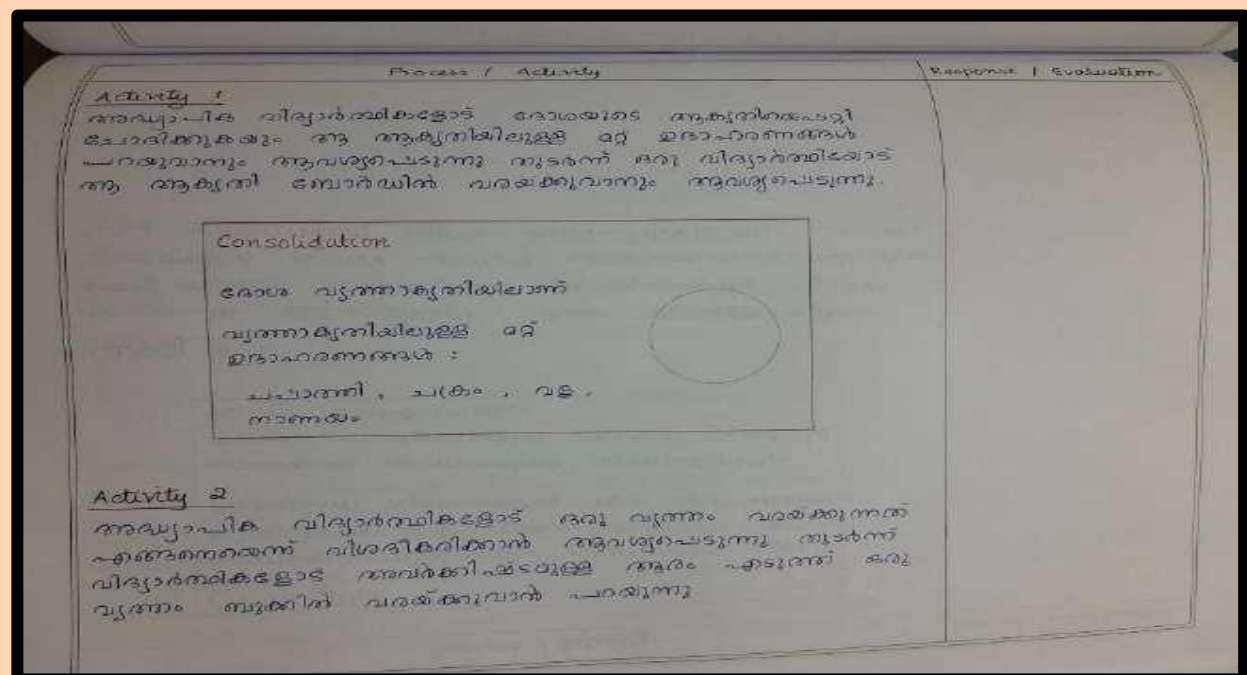 Process / Activity
Response / Evaluation
Activity 1
അദ്ധ്യാപിക വിദ്യാർത്ഥികളോട് ദോശയുടെ ആകൃതിയെപ്പറ്റി
ചോദിക്കുകയും ആ ആകൃതിയിലുള്ള മറ്റ് ഉദാഹരണങ്ങൾ
പറയുവാനും ആവശ്യപ്പെടുന്നു തുടർന്ന് ഒരു വിദ്യാർത്ഥിയോട്
ആ ആകൃതി ബോർഡിൽ വരയ്ക്കുവാനും ആവശ്യപ്പെടുന്നു.
Consolidation
ദോശ വൃത്താകൃതിയിലാണ്
വൃത്താകൃതിയിലുള്ള മറ്റ്
ഉദാഹരണങ്ങൾ :
ചപ്പാത്തി, ചക്രം, വള,
നാണയം
Activity 2
അദ്ധ്യാപിക വിദ്യാർത്ഥികളോട് ഒരു വൃത്തം വരയ്ക്കുന്നത്
എങ്ങനെയെന്ന് വിശദീകരിക്കാൻ ആവശ്യപ്പെടുന്നു തുടർന്ന്
വിദ്യാർത്ഥികളോട് അവർക്കിഷ്ടമുള്ള ആരം എടുത്ത് ഒരു
വൃത്തം ബുക്കിൽ വരയ്ക്കുവാൻ പറയുന്നു